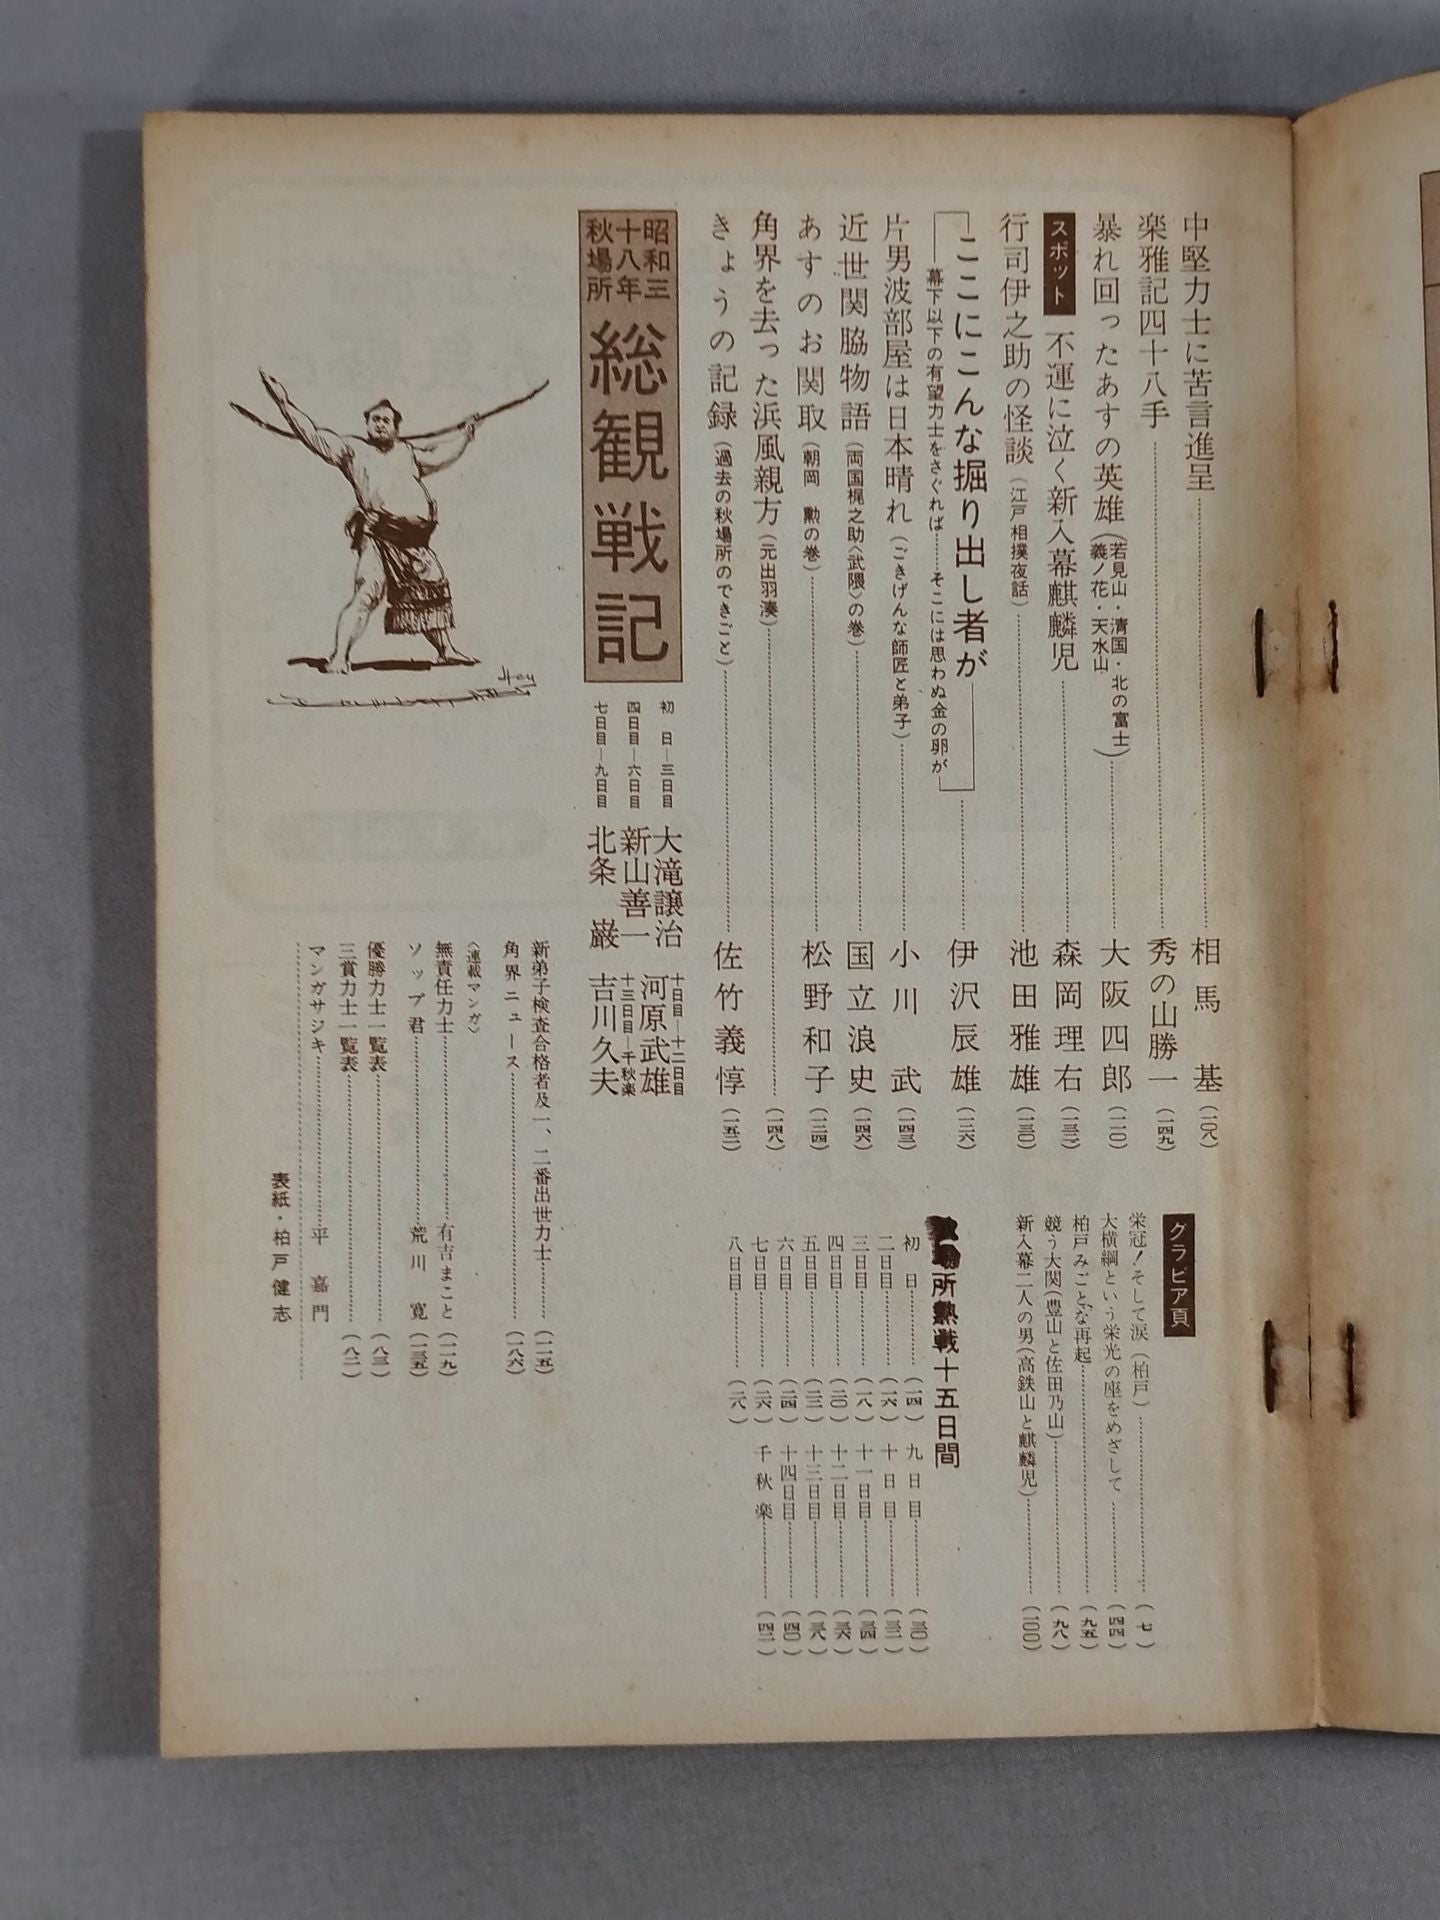 中堅力士に苦言進呈……相馬　基（一〇八）
楽雅記四十八手……秀の山勝一（一四九）
暴れ回ったあすの英雄（若見山・清国・北の富士・義ノ花・天水山）……大阪四郎（一一〇）
スポット　不運に泣く新入幕麒麟児……森岡理右（一三二）
行司伊之助の怪談（江戸相撲夜話）……池田雅雄（一三〇）
ここにこんな掘り出し者が……伊沢辰雄（一二六）
幕下以下の有望力士をさぐれば……そこには思わぬ金の卵が
片男波部屋は日本晴れ（ごきげんな師匠と弟子）……小川　武（一四三）
近世関脇物語（両国梶之助〈武隈〉の巻）……国立浪史（一四六）
あすのお関取（朝岡　勲の巻）……松野和子（一三四）
角界を去った浜風親方（元出羽湊）……（一四八）
きょうの記録（過去の秋場所のできごと）……佐竹義惇（一五二）
昭和三十八年秋場所
総観戦記
初　日―三日目　大滝譲治
四日目―六日目　新山善一
七日目―九日目　北条　巌
十日目―十二日目　河原武雄
十三日目―千秋楽　吉川久夫
新弟子検査合格者及一、二番出世力士……（一一五）
角界ニュース……（一八六）
〈連載マンガ〉
無責任力士……有吉まこと（一二九）
ソップ君……荒川　寛（一三五）
優勝力士一覧表……（八三）
三賞力士一覧表……（八二）
マンガサジキ……平　嘉門
表紙・柏戸健志
グラビア頁
栄冠！そして涙（柏戸）……（七）
大横綱という栄光の座をめざして……（四四）
柏戸みごとな再起……（九五）
競う大関（豊山と佐田乃山）……（九八）
新入幕二人の男（高鉄山と麒麟児）……（一〇〇）
場所熱戦十五日間
初　日……（一四）
二日目……（一六）
三日目……（一八）
四日目……（二〇）
五日目……（二二）
六日目……（二四）
七日目……（二六）
八日目……（二八）
九日目……（三〇）
十日目……（三二）
十一日目……（三四）
十二日目……（三六）
十三日目……（三八）
十四日目……（四〇）
千秋楽……（四二）